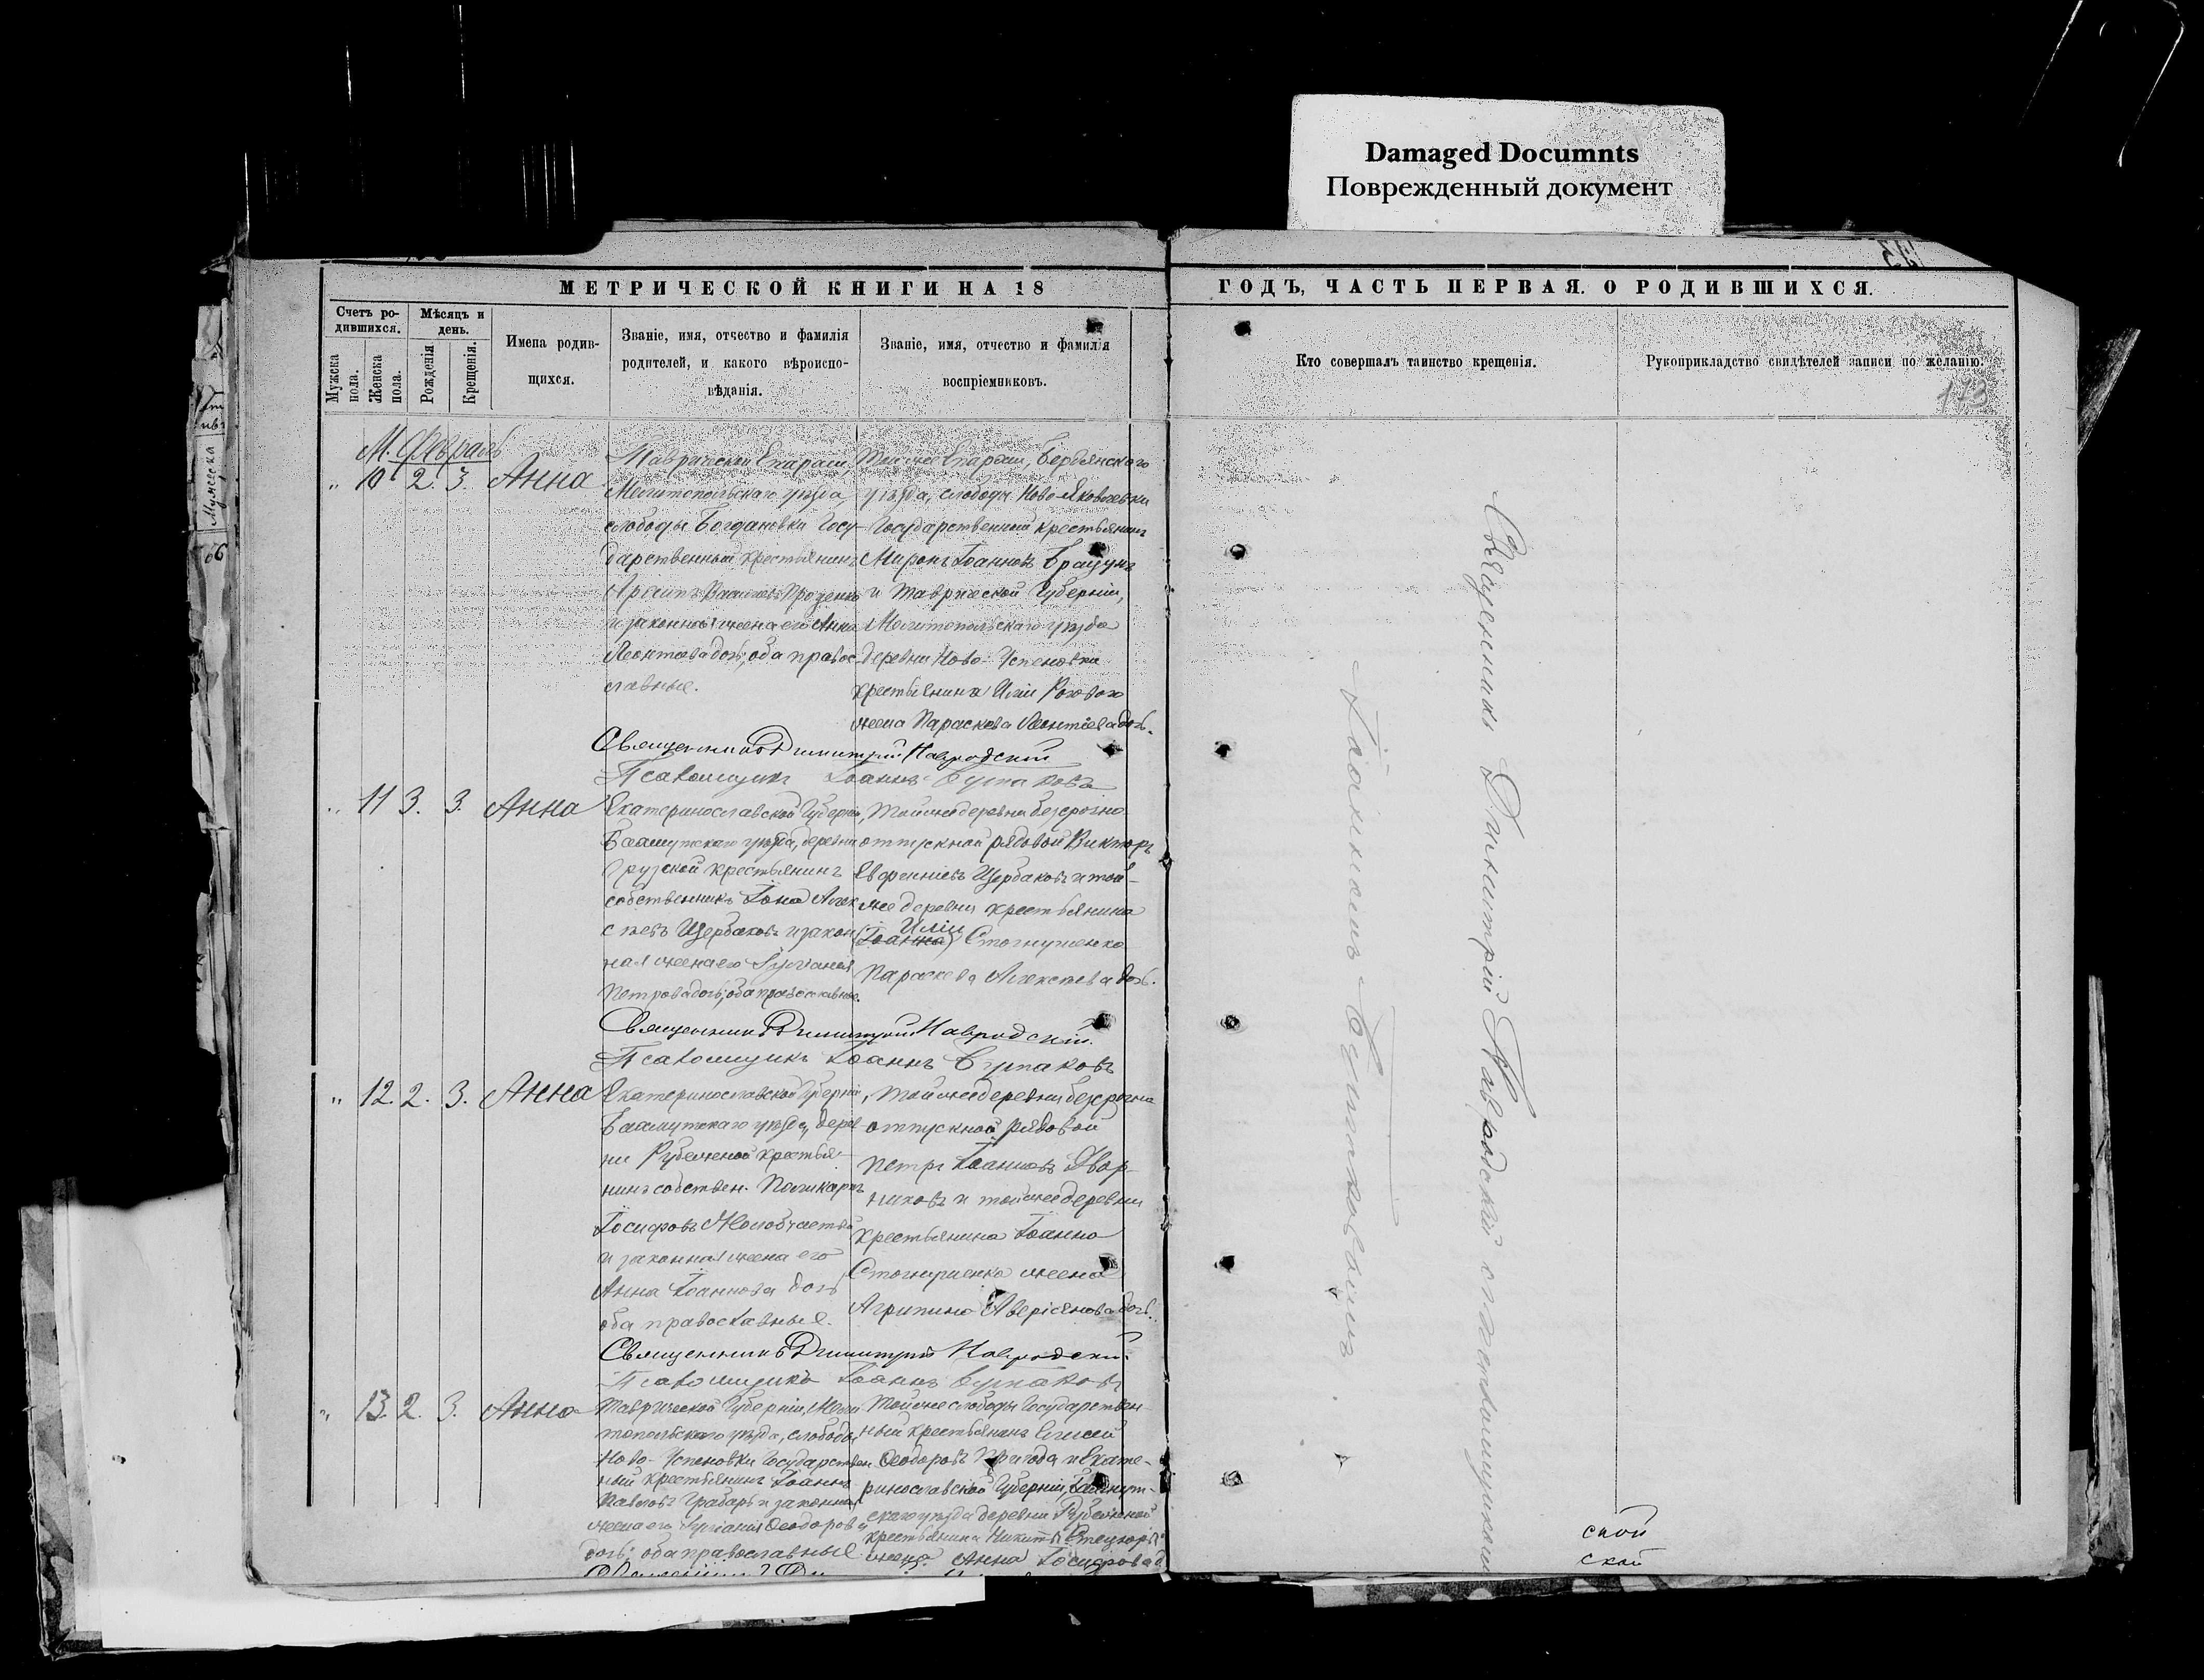 Damaged Documnts
Поврежденный документ
МЕТРИЧЕСКОЙ КНИГИ НА 18
ГОДЪ, ЧАСТЬ ПЕРВАЯ. О РОДИВШИХСЯ.
Счетъ ро-
дившихся.
Мужска
пола.
Женска
пола.
Мѣсяцъ и
день.
Рожденія
Крещенія.
Имена родив-
щихся.
Званіе, имя, отсество и фамилія
родителей, и какого вѣроиспо-
вѣданія.
Званіе, имя, отчество и фамилія
воспріемниковъ.
Кто совершалъ таинство крещенія.
Рукоприкладство свидѣтелей записи по желанію.
173
М. Февраль
" 10 2. 3. Анна
Таврической Епархіи,
Мелитопольскаго уѣзда,
слободы Богдановки Госу-
дарственный крестьянинъ
Архипъ Васильевъ Проценко
и законная жена его Анна
Леонтіева дочь; оба правос-
лавные.
Той же Епархіи, Бердянскаго
уѣзда, слободы Ново-Яковлевки
Государственный крестьянинъ
Миронъ Іоанновъ
и Таврической Губерніи,
Мелитопольскаго уѣзда
деревни Ново-Успеновки
крестьянина Иліи
жена Параскева Леонтіева дочь.
Священникъ Димитрій Навродскій
Псаломщикъ Іоаннъ
" 11 3. 3. Анна
Екатеринославской Губерніи,
Бахмутскаго уѣзда, деревни
Грузской крестьянинъ
собственникъ Іона Алек
сѣевъ Щербаковъ и закон
ная жена его Іуліанія
Петрова дочь; оба православные.
Той же деревни безсрочно
отпускной рядовой Викторъ
Евфеніевъ Щербаковъ и той
же деревни крестьянина
Иліи
(Іоанна) Стогнушенко
Параскева Алексѣева дочь.
Священникъ Димитрій Навродскій.
Псаломщикъ Іоаннъ
" 12. 2. 3. Анна
Екатеринославской Губерніи,
Бахмутскаго уѣзда, дерев
ни Рубежной крестья-
нинъ собствен. Поликарпъ
Іосифовъ
и законная жена его
Анна Іоаннова дочь
оба православные.
Той же деревни безсрочно
отпускной рядовой
Петръ Іоанновъ Двор-
никовъ и той же деревни
крестьянина Іоанна
Стогнушенка жена
Агрипина Аверкіянова дочь.
Священникъ Димитрій Навродскій.
Псаломщикъ Іоаннъ
" 13. 2. 3. Анна
Таврической Губерніи, Мели
топольскаго уѣзда, слободы
Ново-Успеновки Государствен
ный крестьянинъ Іоаннъ
Павловъ Грабарь и законная
жена его Іуліанія Ѳеодорова
дочь; оба православные
Той же слободы Государствен-
ный крестьянинъ Елисей
Ѳеодоровъ Пригода и Екате-
ринославской Губерніи, Бахмут-
скаго уѣзда деревни Рубежной
крестьянина Никиты
жена Анна Іосифова
Священникъ Димитрій Навродскій съ псаломщикомъ
ской
ской